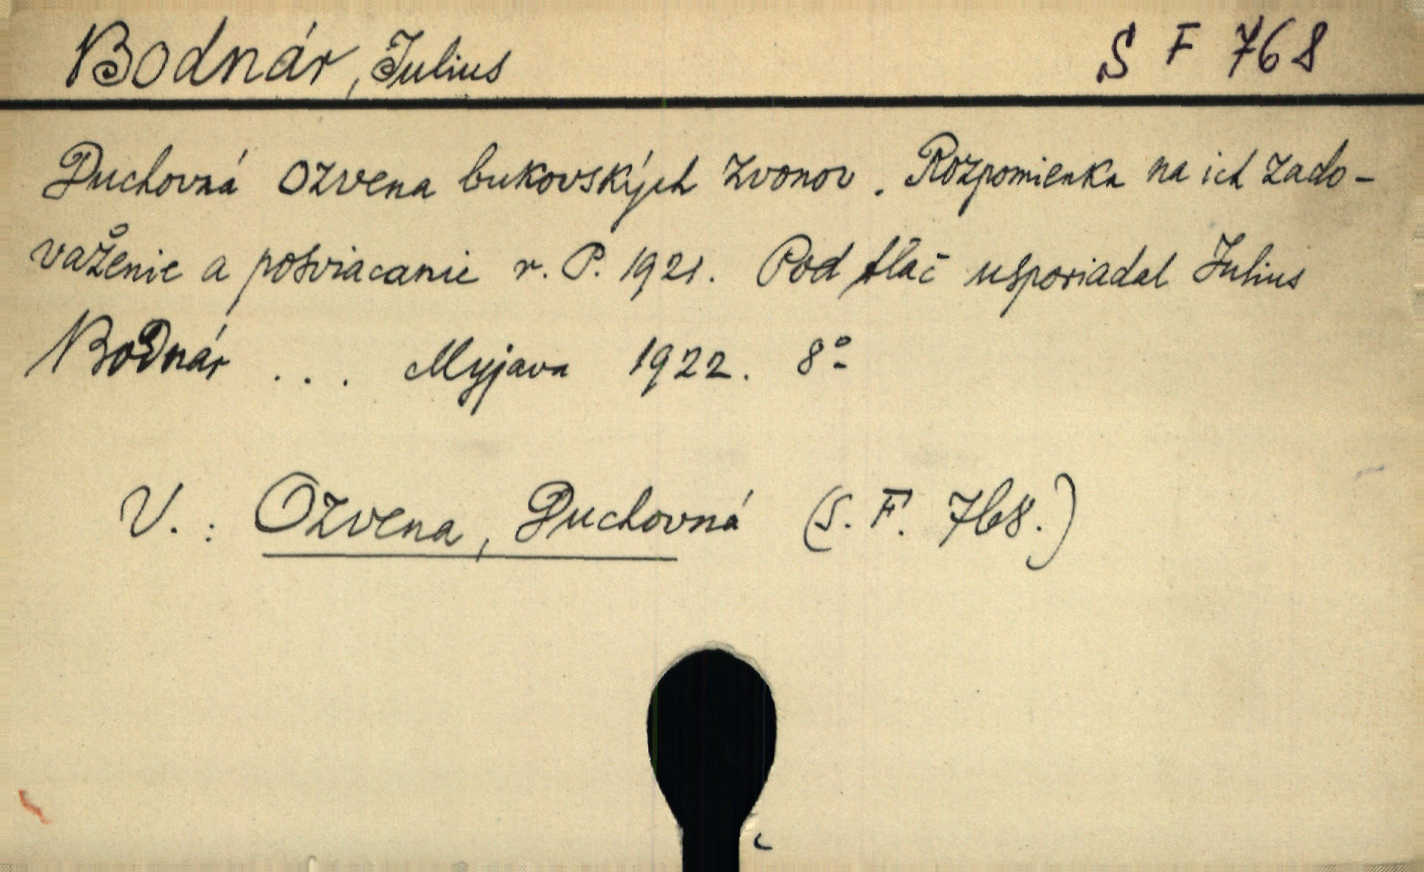 Bodnár, Julius S F 768
Duchovná ozvena bukovských zvonov. Rozpomienka na ich zado-
važenie a posviacanie r. P. 1921. Pod tlač usporiadal Julius
Bodnár ... Myjava 1922. 8°
V.: Ozvena, Duchovná (S. F. 768.)